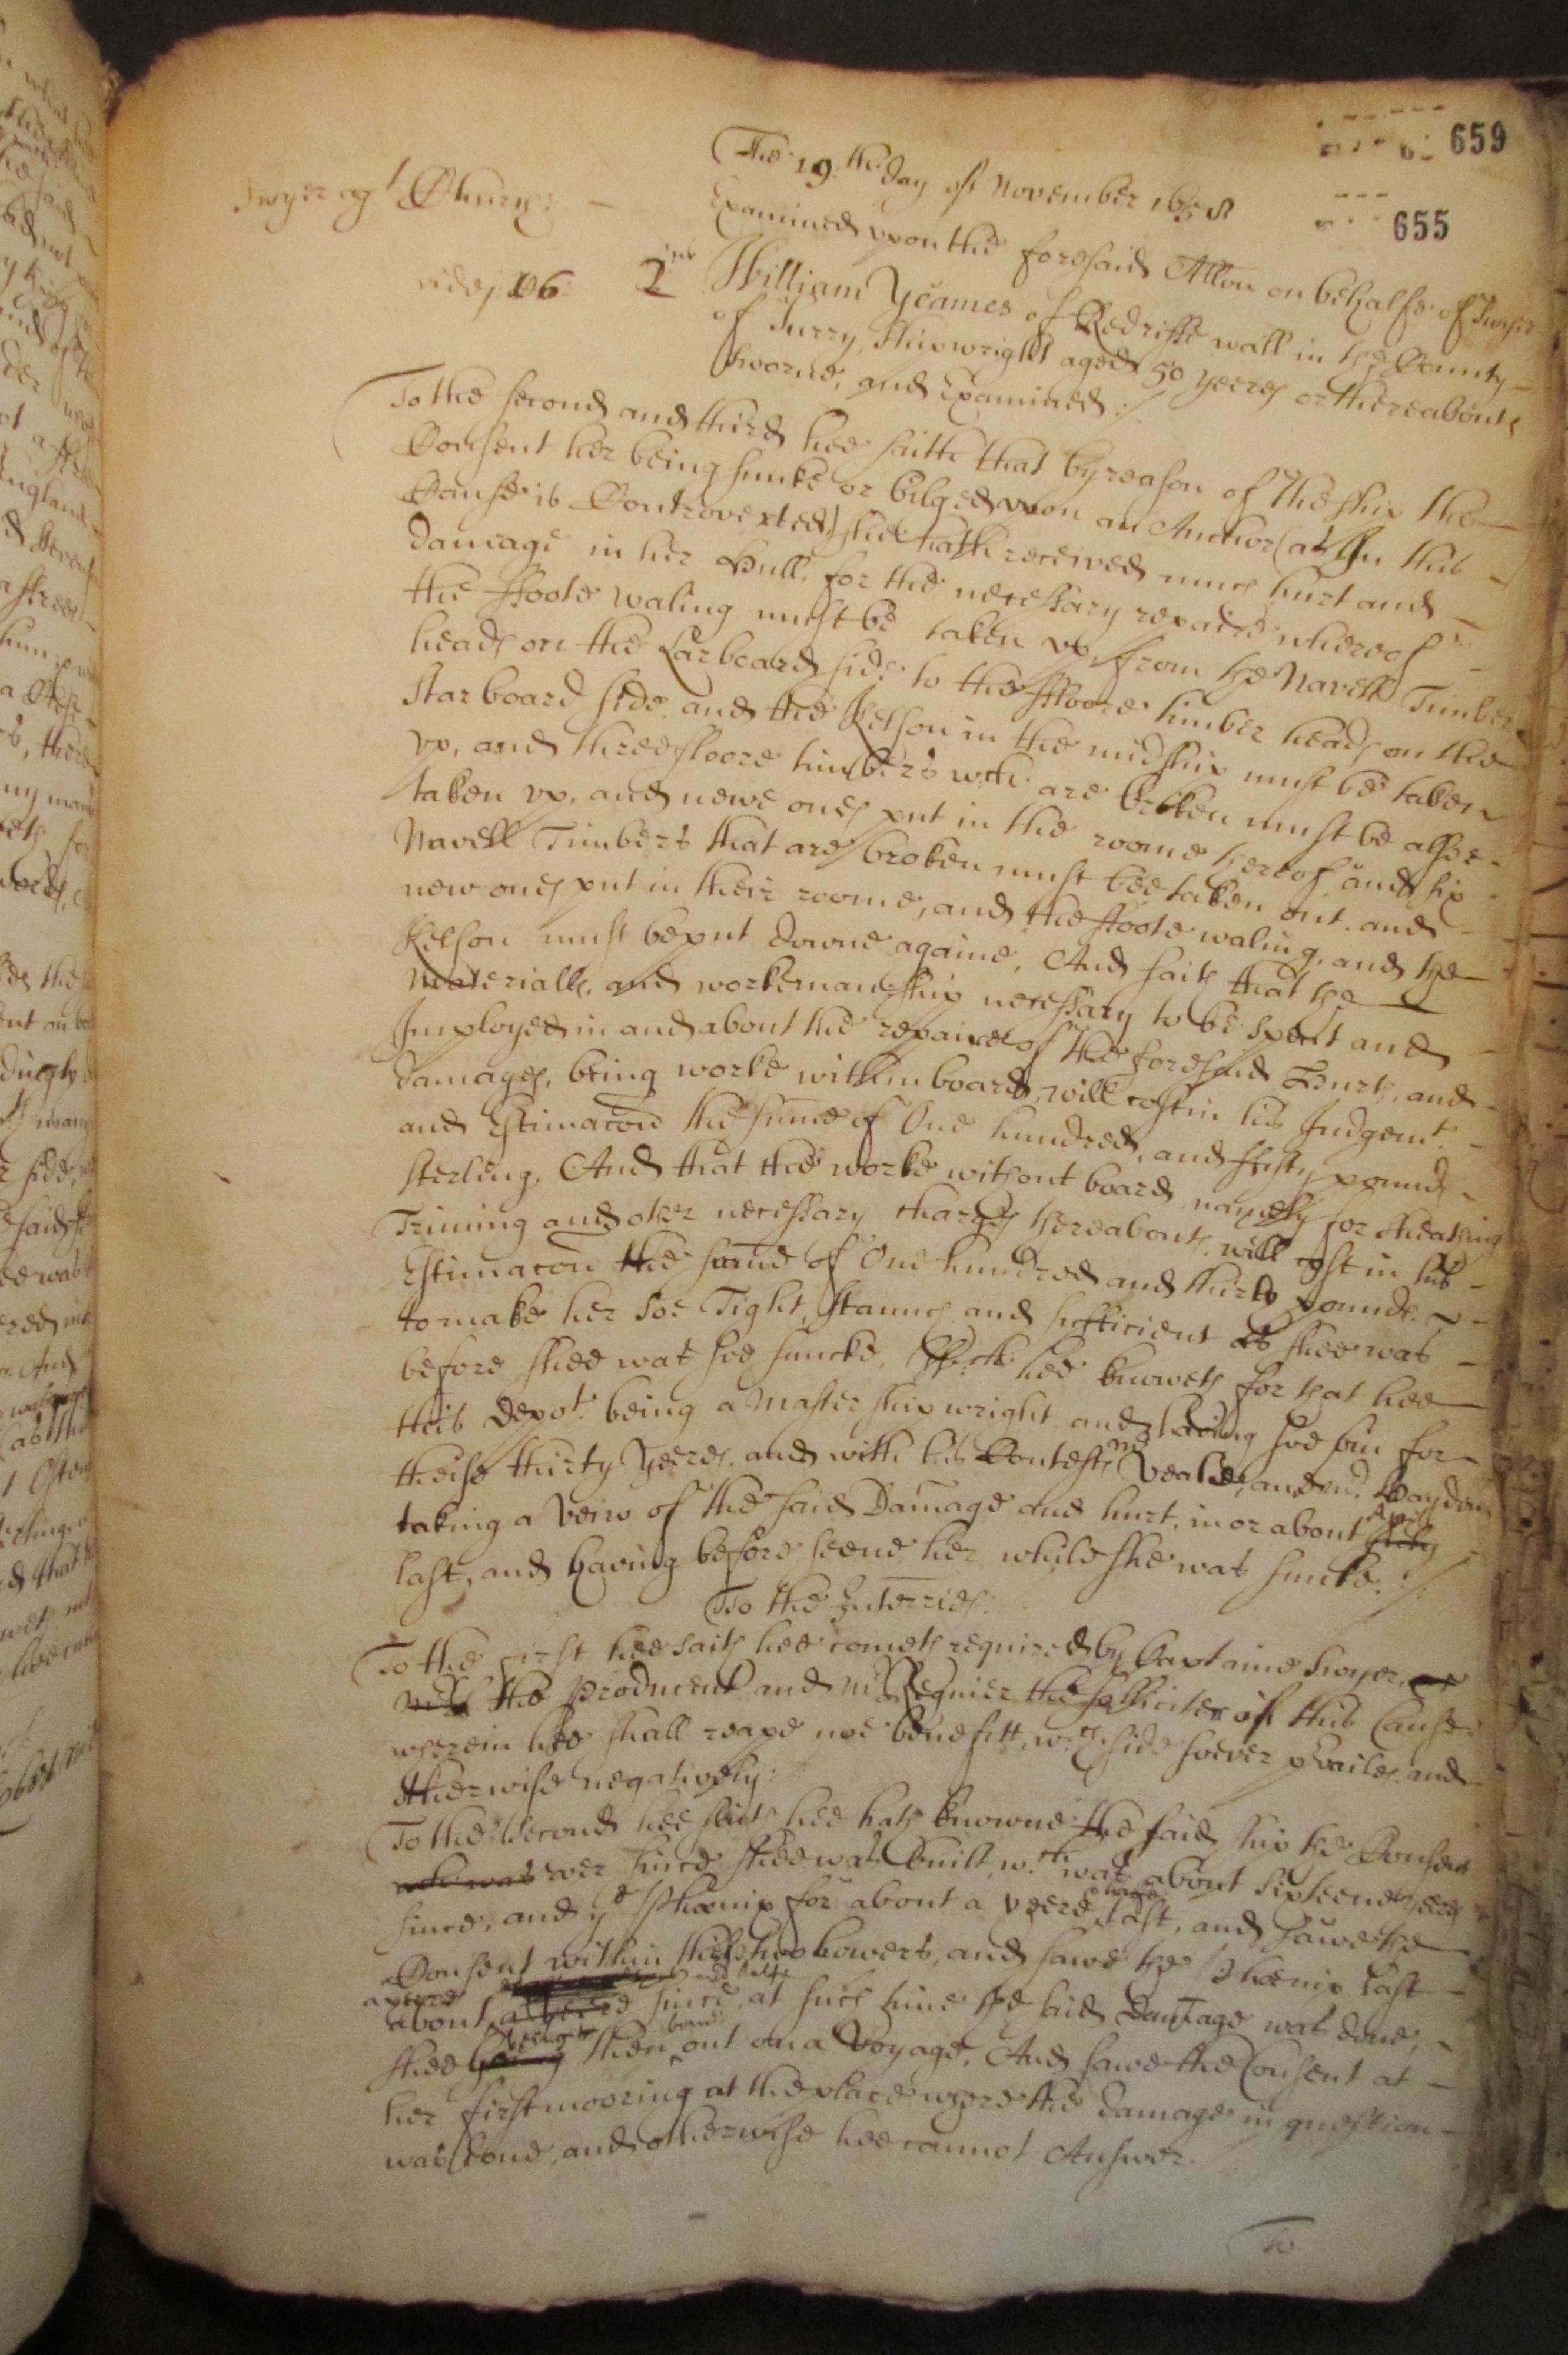 659
655
The 19th: day of November 1658
Swyer agt Chury:
Examined upon the foresaid Allon on behalfe of Swyer
vide j 06: 2us William Yeames of Redriffe wall in the County
of Surry, Shipwright aged 50 yeeres or thereabouts
sworne, and Examined:/
To the second and third hee saith that by reason of the ship the
Consent her being suncke or bilged upon an Anchor (as In this
Cause is Controverted) shee hath received much hurt and
damage in her Hull, for the necessary repaire whereof
the ffoote waling must be taken up from the Navell Timber
heads on the Larboard side to the ffloore timber heads on the
Starboard side, and the Kelson in the midship must be taken
up, and three floore timbers wch are broken must be alsoe
taken up, and newe ones put in the roome thereof, and six
Navell Timbers that are broken must bee taken out. and
new ones put in their roome, and the ffoote waling, and the
Kelson must be put downe againe, And saith that the
materialls, and workemanship necessary to be spent and
Imployed in and about the repaire of the foresaid Hurts, and
damages, being worke within board, will cost in his Judgemt:
and Estimacon the summe of One hundred, and ffifty pounds
sterling, And that the worke without board, namely for sheathing
Triming and other necessary charges thereabouts, will cost in his
Estimacon the summe of One hundred and thirty pounds
to make her soe Tight, Staunch and sufficient as shee was
before shee was soe suncke, Wch hee knoweth for that hee
this depot. being a Master shipwright, and having soe bin for
theise thirty Yeeres, and with his Contests mr Veale, and mr. Haydon
taking a veiw of the said Damage and hurt, in or about April
last, and having before seene her while she was suncke:/
To the Interries:
To the first hee saith hee cometh required by Captaine Swyer
the Producent and mr Regnier the solliciter of this Cause
wherein hee shall reape noe benefitt, wch side soever prevailes, and
otherwise negatively:
To the second hee saith hee hath knowne the said ship the Consent
wch was ever since shee was built, wch was about sixteene yeeres
since, and ye Phoenix for about a yeere last, and sawe the
Consent within this two howers, and sawe the Phoenix last
about a yeere and halfe since, at such time the said Damage was done,
shee being then bound out on a Voyage, And sawe the Consent at
her first mooring at the place where the damage in question
was done, and otherwise hee cannot Answer.
To